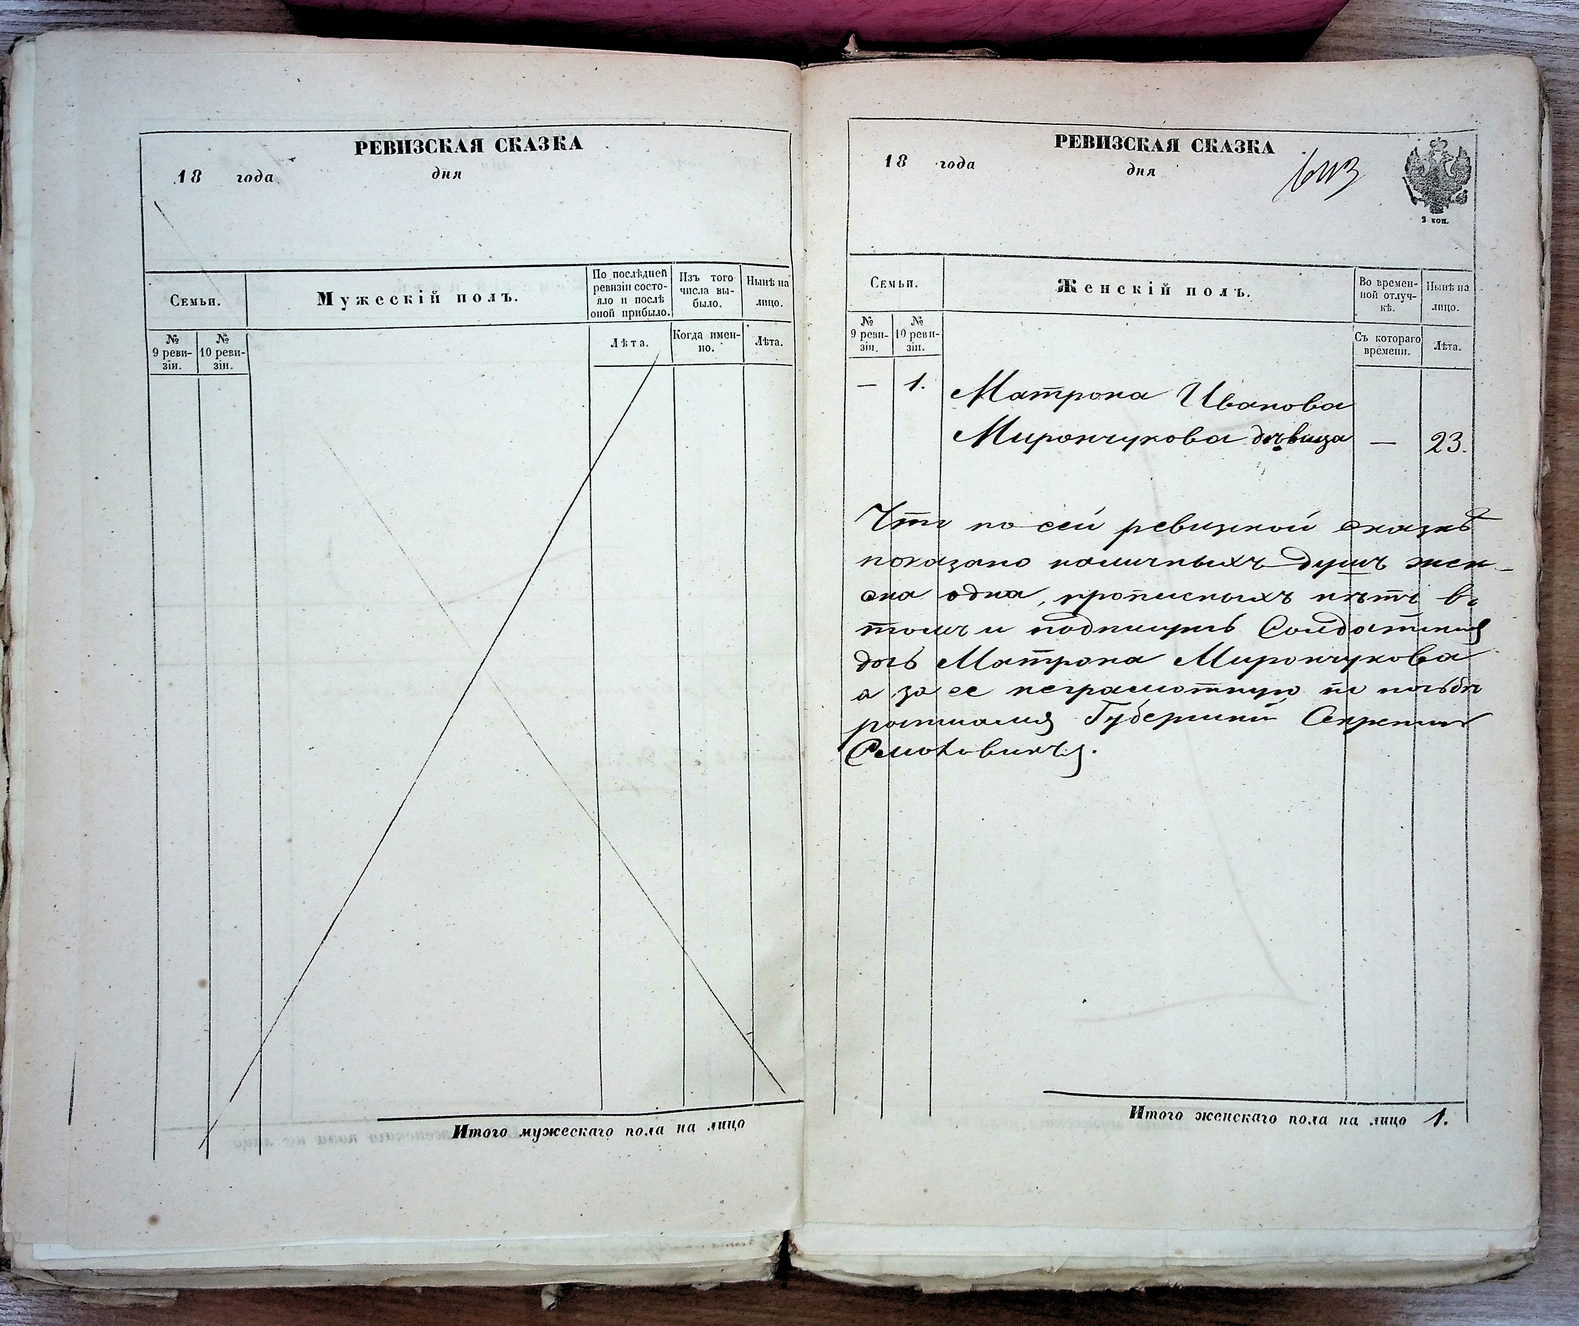 РЕВИЗСКАЯ СКАЗКА
18 года дня
Семьи.
Мужескій полъ.
По послѣдней
ревизіи состо-
яло и послѣ
оной прибыло.
Изъ того
числа вы-
было.
Нынѣ на
лицо.
№
9 реви-
зіи.
№
10 реви-
зіи.
Лѣта.
Когда имен-
но.
Лѣта.
Итого мужескаго пола на лицо
РЕВИЗСКАЯ СКАЗКА
18 года дня
2 коп.
Семьи.
Женскій полъ.
Во времен-
ной отлуч-
кѣ.
Нынѣ на
лицо.
№
9 реви-
зіи.
№
10 реви-
зіи.
Съ котораго
времени.
Лѣта.
— 1. Матрона Иванова
Мирончукова дѣвица — 23.
Что по сей ревизкой сказкѣ
показано наличныхъ душъ жен-
ска одна, прописныхъ нѣтъ въ
томъ и подпишусь Солдатская
дочь Матрона Мирончукова
а за ее неграмотную по
Губернскій
Итого женскаго пола на лицо 1.